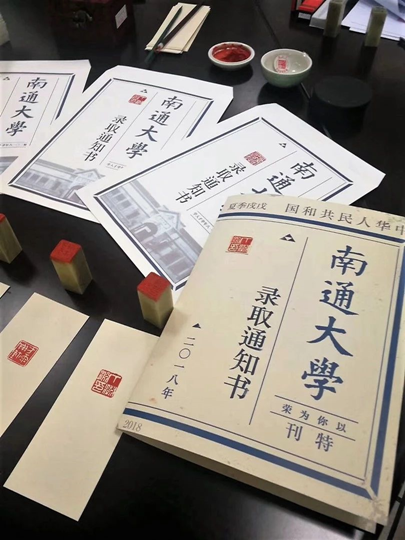 南通大學
录取通知书
南通大學
录取通知书
南通大學
录取通知书
中华人民共和国
戊戌季夏
南通大學
以你为荣
特刊
录取通知书
二〇一八年
2018